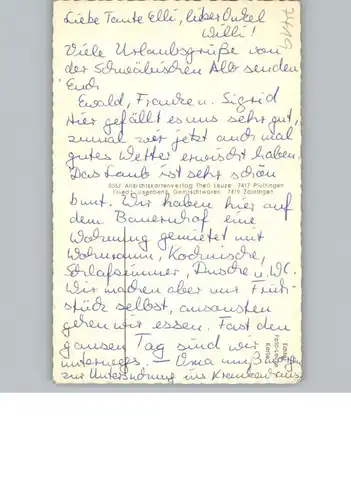 7419
Liebe Tante Elli, lieber Onkel
Willi!
Viele Urlaubsgrüße von
der Schwäbischen Alb senden
Euch
Ewald, Frauke u. Sigrid
Hier gefällt es uns sehr gut,
zumal wir jetzt auch mal
gutes Wetter erwischt haben.
Das Laub ist sehr schön
5062 Ansichtskartenverlag Theo Leuze, 7417 Pfullingen
Gemischtwaren, 7419 Zainingen
bunt. Wir haben hier auf
dem Bauernhof eine
Wohnung gemietet mit
Wohnraum, Kochnische,
Schlafzimmer, Dusche u. WC.
Wir machen aber nur Früh-
stück selbst, ansonsten
gehen wir essen. Fast den
ganzen Tag sind wir
unterwegs. — Oma muß
zur Untersuchung ins Krankenhaus.